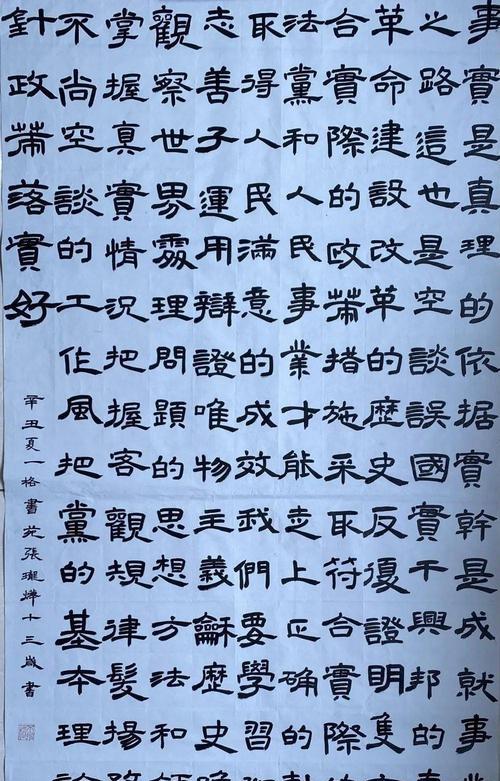 事實是真理的依據實幹是成就事
之路這也是空談誤國實干興邦的
革命建設改革的歷史反復證明隻
合實際的政策措施采取符合實際
法黨和人民事業才能走上正確的
取得人民滿意的成效我們要學習
志善子運用辯證唯物主義龢歷史
觀察世界處理問題的思想方法和
掌握真實情況把握客觀規律髮揚
不尚空談的工作風把黨的基本理
針政策落實好
辛丑夏一格書苑張瓏燁十三歲書